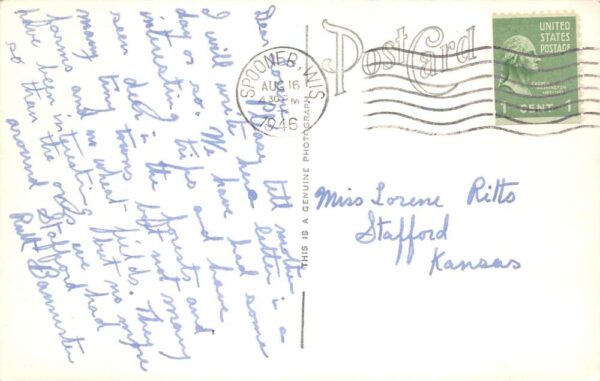 Dear Please tell mother
I will write her a letter in a
day or so. We have had some
interesting trips and have
seen deer in the forests and
many tiny towns but not many
farms and no wheat-fields. They
have been interesting but no more
so than the ones we had
around Stafford
Ruth Bannister
Post Card
SPOONER, WIS
AUG 16
4 30 PM
1946
UNITED
STATES
POSTAGE
1 CENT 1
THIS IS A GENUINE PHOTOGRAPH
Miss Lorene Ritts
Stafford
Kansas